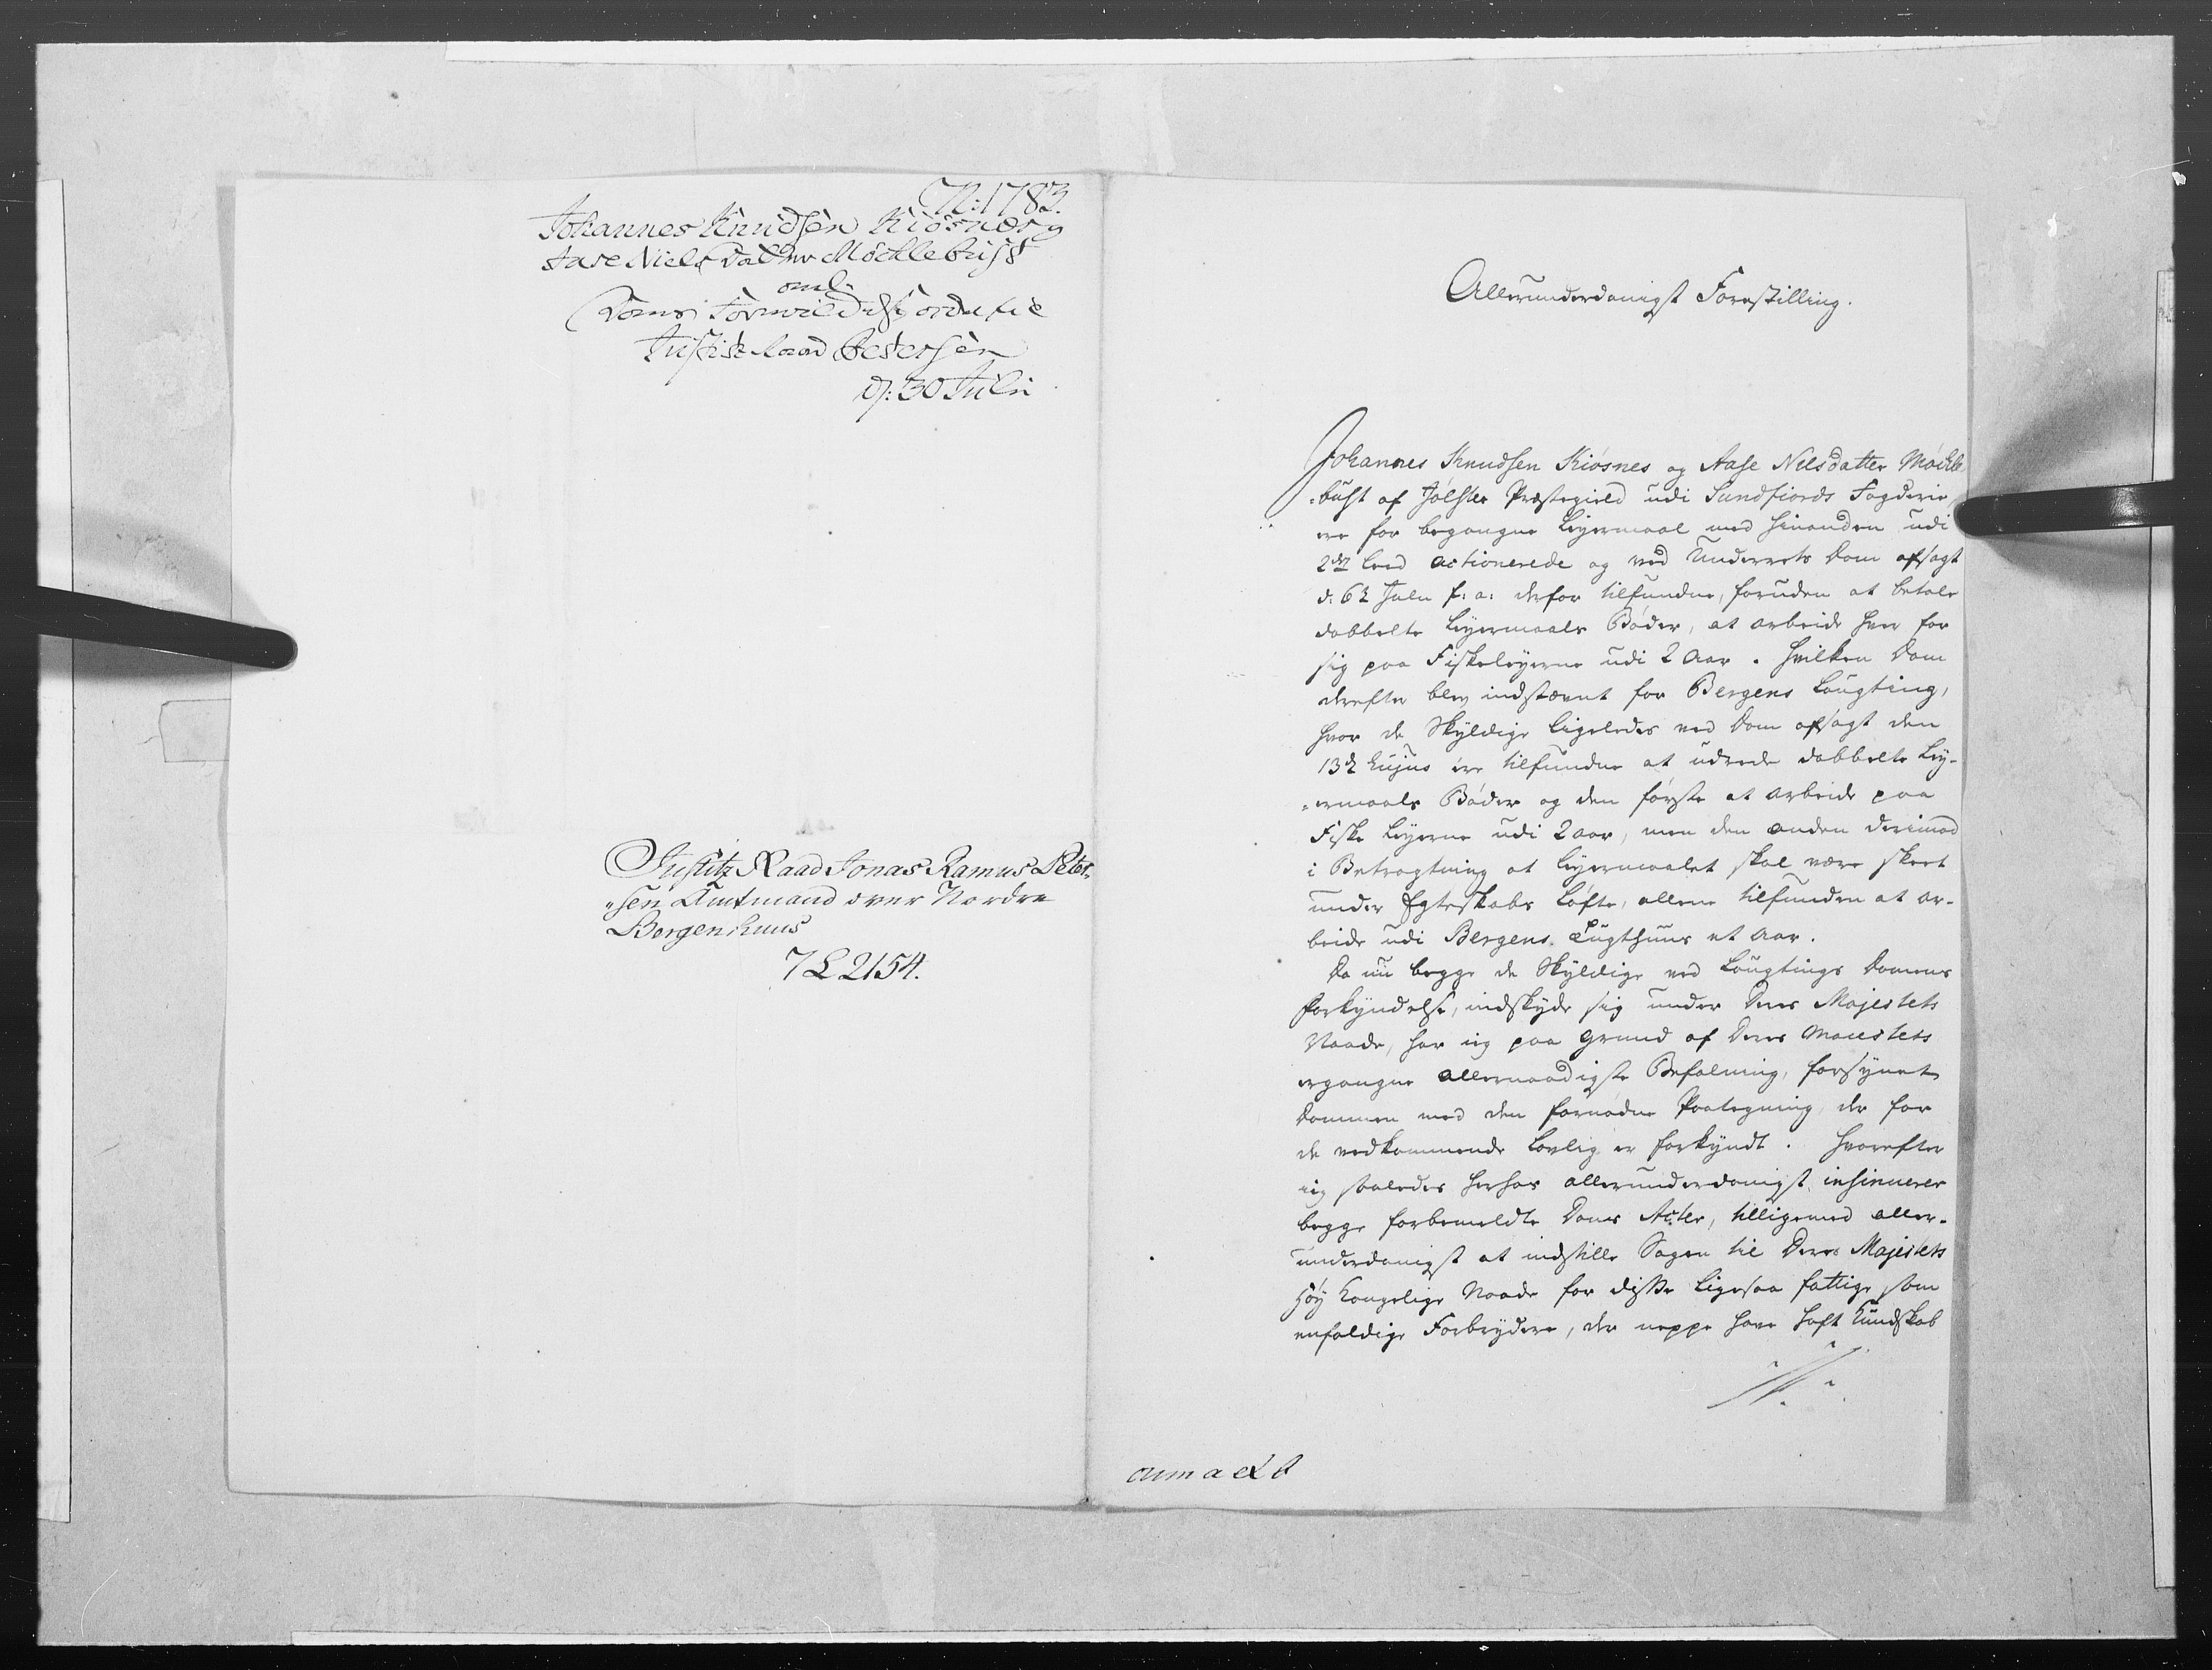 N: 1783.
Johannes Knudsen Kiösnes og
Aase Niels Datter Möcklebust
om
Doms Formildelse ordre til
Justitz Raad Petersen
d: 30 Julii
Justitz Raad Jonas Ramus Peter-
"sen Amtmand over Nordre
Bergenhuus
7 L 2154.
Allerunderdanigst Forestilling.
Johannes Knudsen Kiósnes og Aase Nelsdatter Móckle
-bust af Jólster Præstegield udi Sundfiords Fogderie
ere for begangne Leyermaal med hinanden udi
2det Leed actionerede og ved Underrets Dom afsagt
d: 6te Julii f: a: derfor tilfundne, foruden at betale
dobbelte Leyermaals Bóder, at arbeide hver for
sig paa Fiskeleyerne udi 2 Aar. Hvilken Dom
derefter blev indstævnt for Bergens Laugting,
hvor de Skyldige ligeledes ved Dom afsagt den
13de hujus ere tilfundne at udrede dobbelte Ley-
-ermaals Bóder og den fórste at arbeide paa
Fiske Leyerne udi 2 aar, men den anden derimod
i Betragtning at Leyermaalet skal være skeet
under Egteskabs Lófte, allene tilfunden at ar-
beide udi Bergens Tugthuus et Aar.
Da nu begge de Skyldige ved Laugtings Dommens
Forkyndelse, indskyde sig under Deres Majestets
Naade, har ieg paa Grund af Deres Maiestets
ergangne allernaadigste Befalning, forsynet
Dommen med den fornódne Paategning, der for
de vedkommende lovlig er forkyndt. Hvorefter
ieg saaledes herhos allerunderdanigst insinuerer
begge forbemeldte Doms Acter, tilligemed aller-
underdanigst at indstille Sagen til Deres Majestets
Hóy Kongelige Naade for disse ligesaa fattige som
enfoldige Forbrydere, der neppe have haft Kundskab
cum act